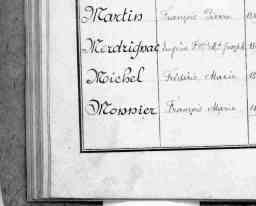 Martin François Pierre
Merdrignac Eugène F. M. Joseph
Michel Frédéric Marie
Monnier François Marie